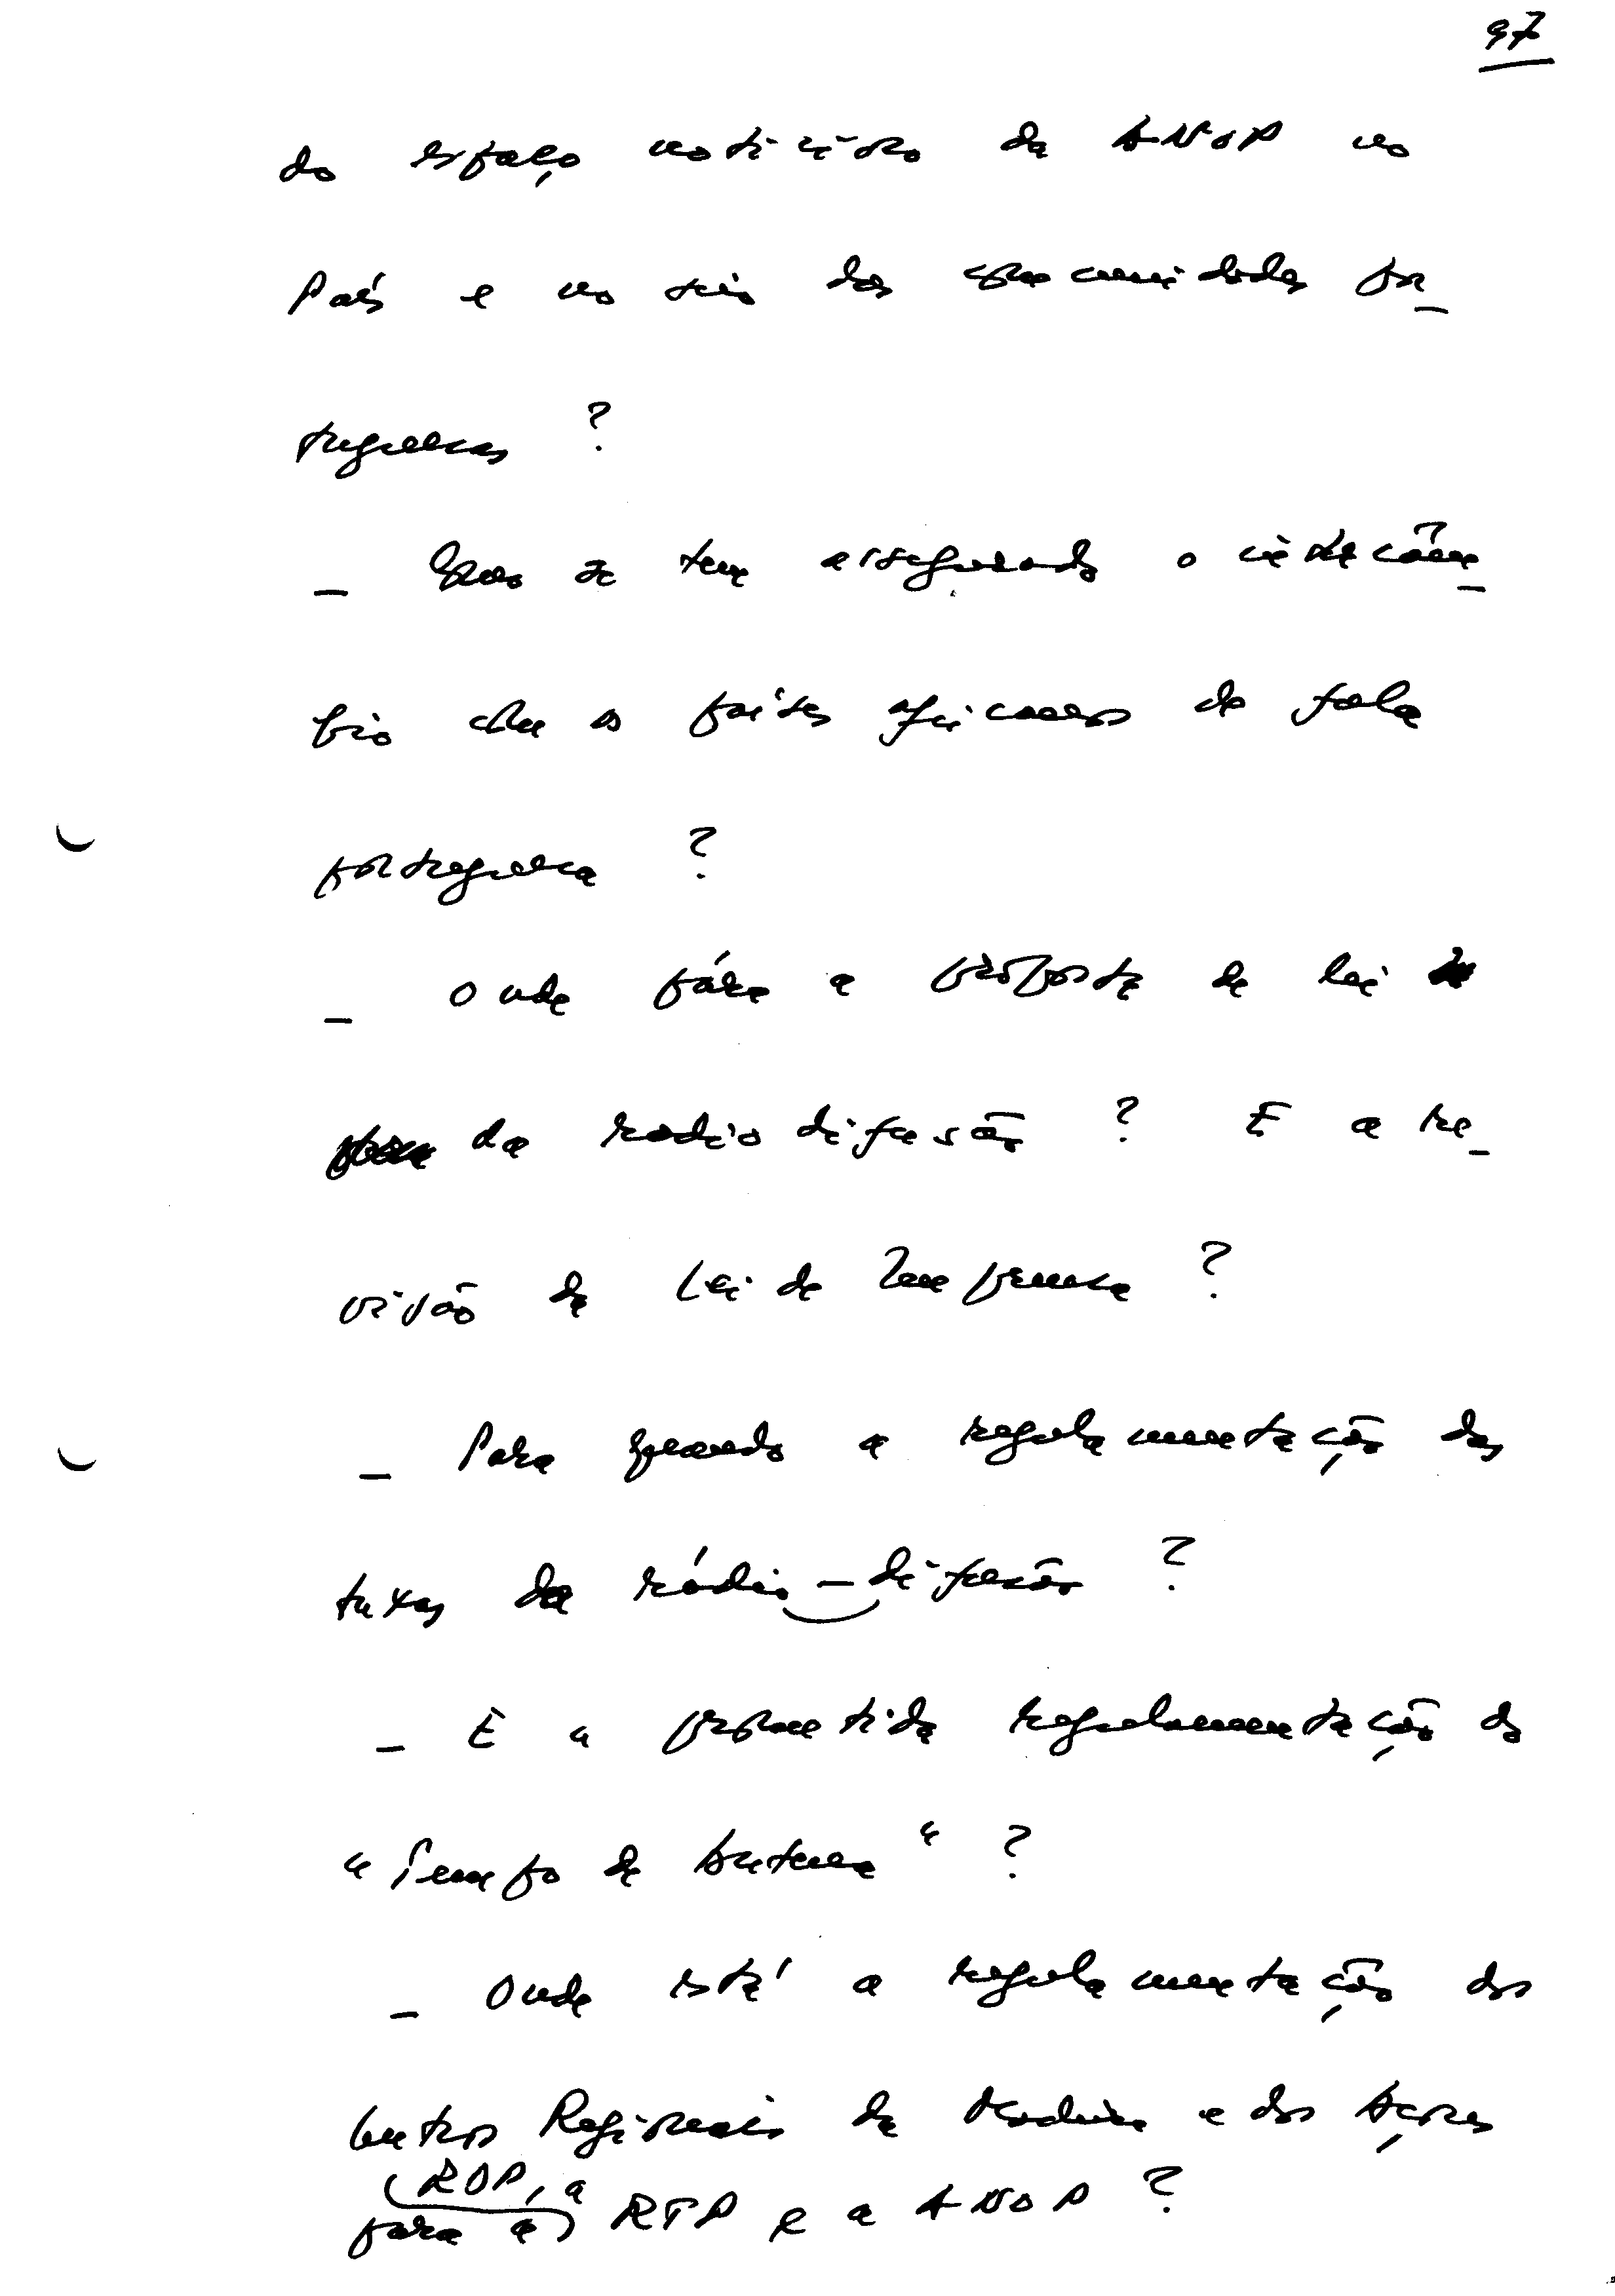 97
do espaço noticioso da ANOP no
País e no seio das comunidades por_
tuguesas ?
_ Como se tem assegurado o intercâm_
bio com os países africanos de fala
portuguesa ?
_ Onde pára a proposta de lei
da radiodifusão ? E a re_
visão da Lei de Imprensa ?
_ Para quando a regulamentação das
taxas da rádio-difusão ?
_ E a prometida regulamentação do
"Tempo de Antena" ?
_ Onde está a regulamentação dos
Centros Regionais da Madeira e dos Açores
RDP, a
para a RTP e a ANOP ?